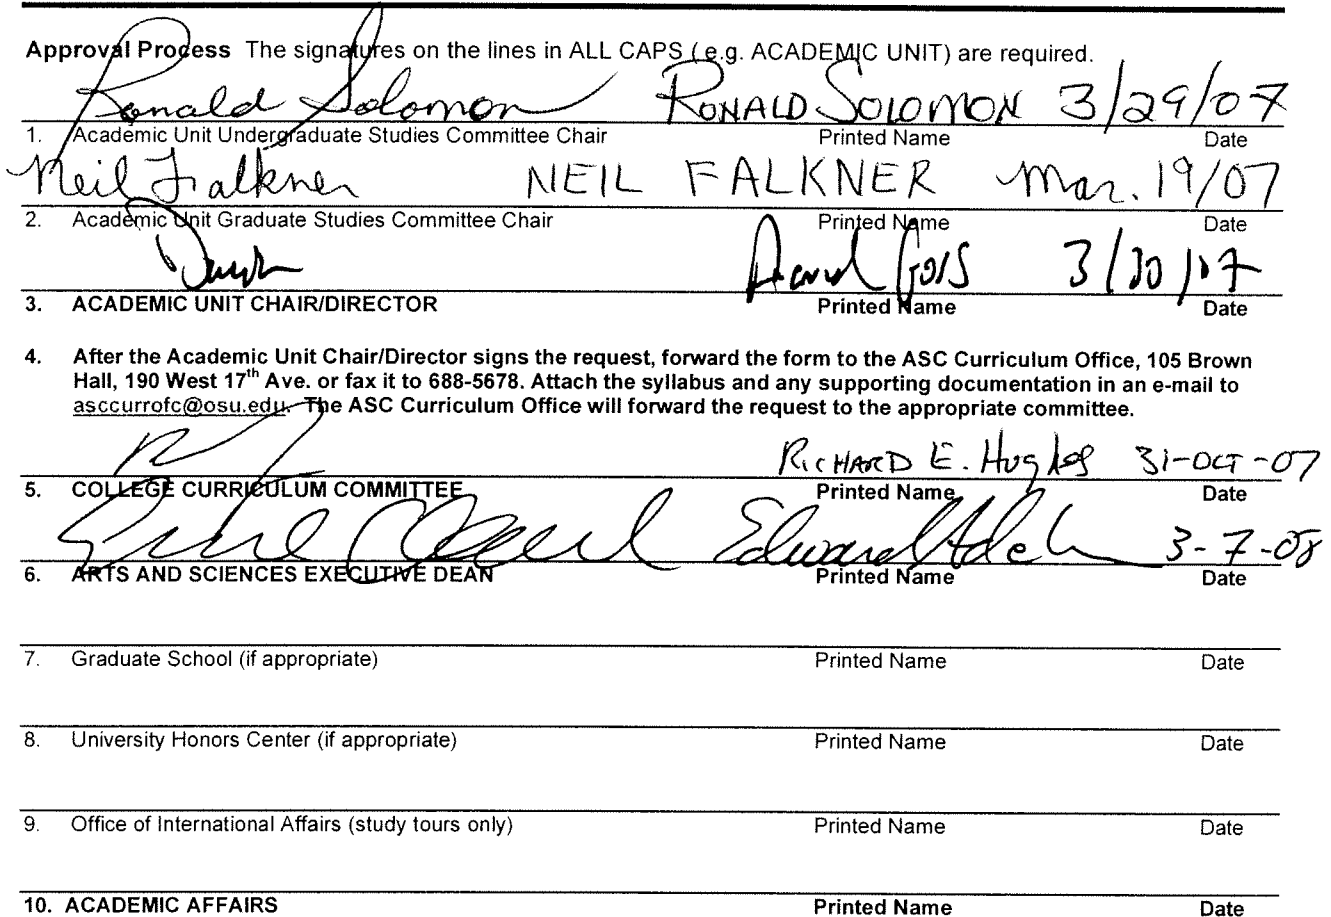 Approval Process The signatures on the lines in ALL CAPS ( e.g. ACADEMIC UNIT) are required.
Ronald Solomon RONALD SOLOMON 3/29/07
1. Academic Unit Undergraduate Studies Committee Chair Printed Name Date
Neil Falkner NEIL FALKNER Mar. 19/07
2. Academic Unit Graduate Studies Committee Chair Printed Name Date
3/30/07
3. ACADEMIC UNIT CHAIR/DIRECTOR Printed Name Date
4. After the Academic Unit Chair/Director signs the request, forward the form to the ASC Curriculum Office, 105 Brown
Hall, 190 West 17th Ave. or fax it to 688-5678. Attach the syllabus and any supporting documentation in an e-mail to
asccurrofc@osu.edu. The ASC Curriculum Office will forward the request to the appropriate committee.
RICHARD E. Hughes 31-OCT-07
5. COLLEGE CURRICULUM COMMITTEE Printed Name Date
Edward Adelson 3-7-08
6. ARTS AND SCIENCES EXECUTIVE DEAN Printed Name Date
7. Graduate School (if appropriate) Printed Name Date
8. University Honors Center (if appropriate) Printed Name Date
9. Office of International Affairs (study tours only) Printed Name Date
10. ACADEMIC AFFAIRS Printed Name Date